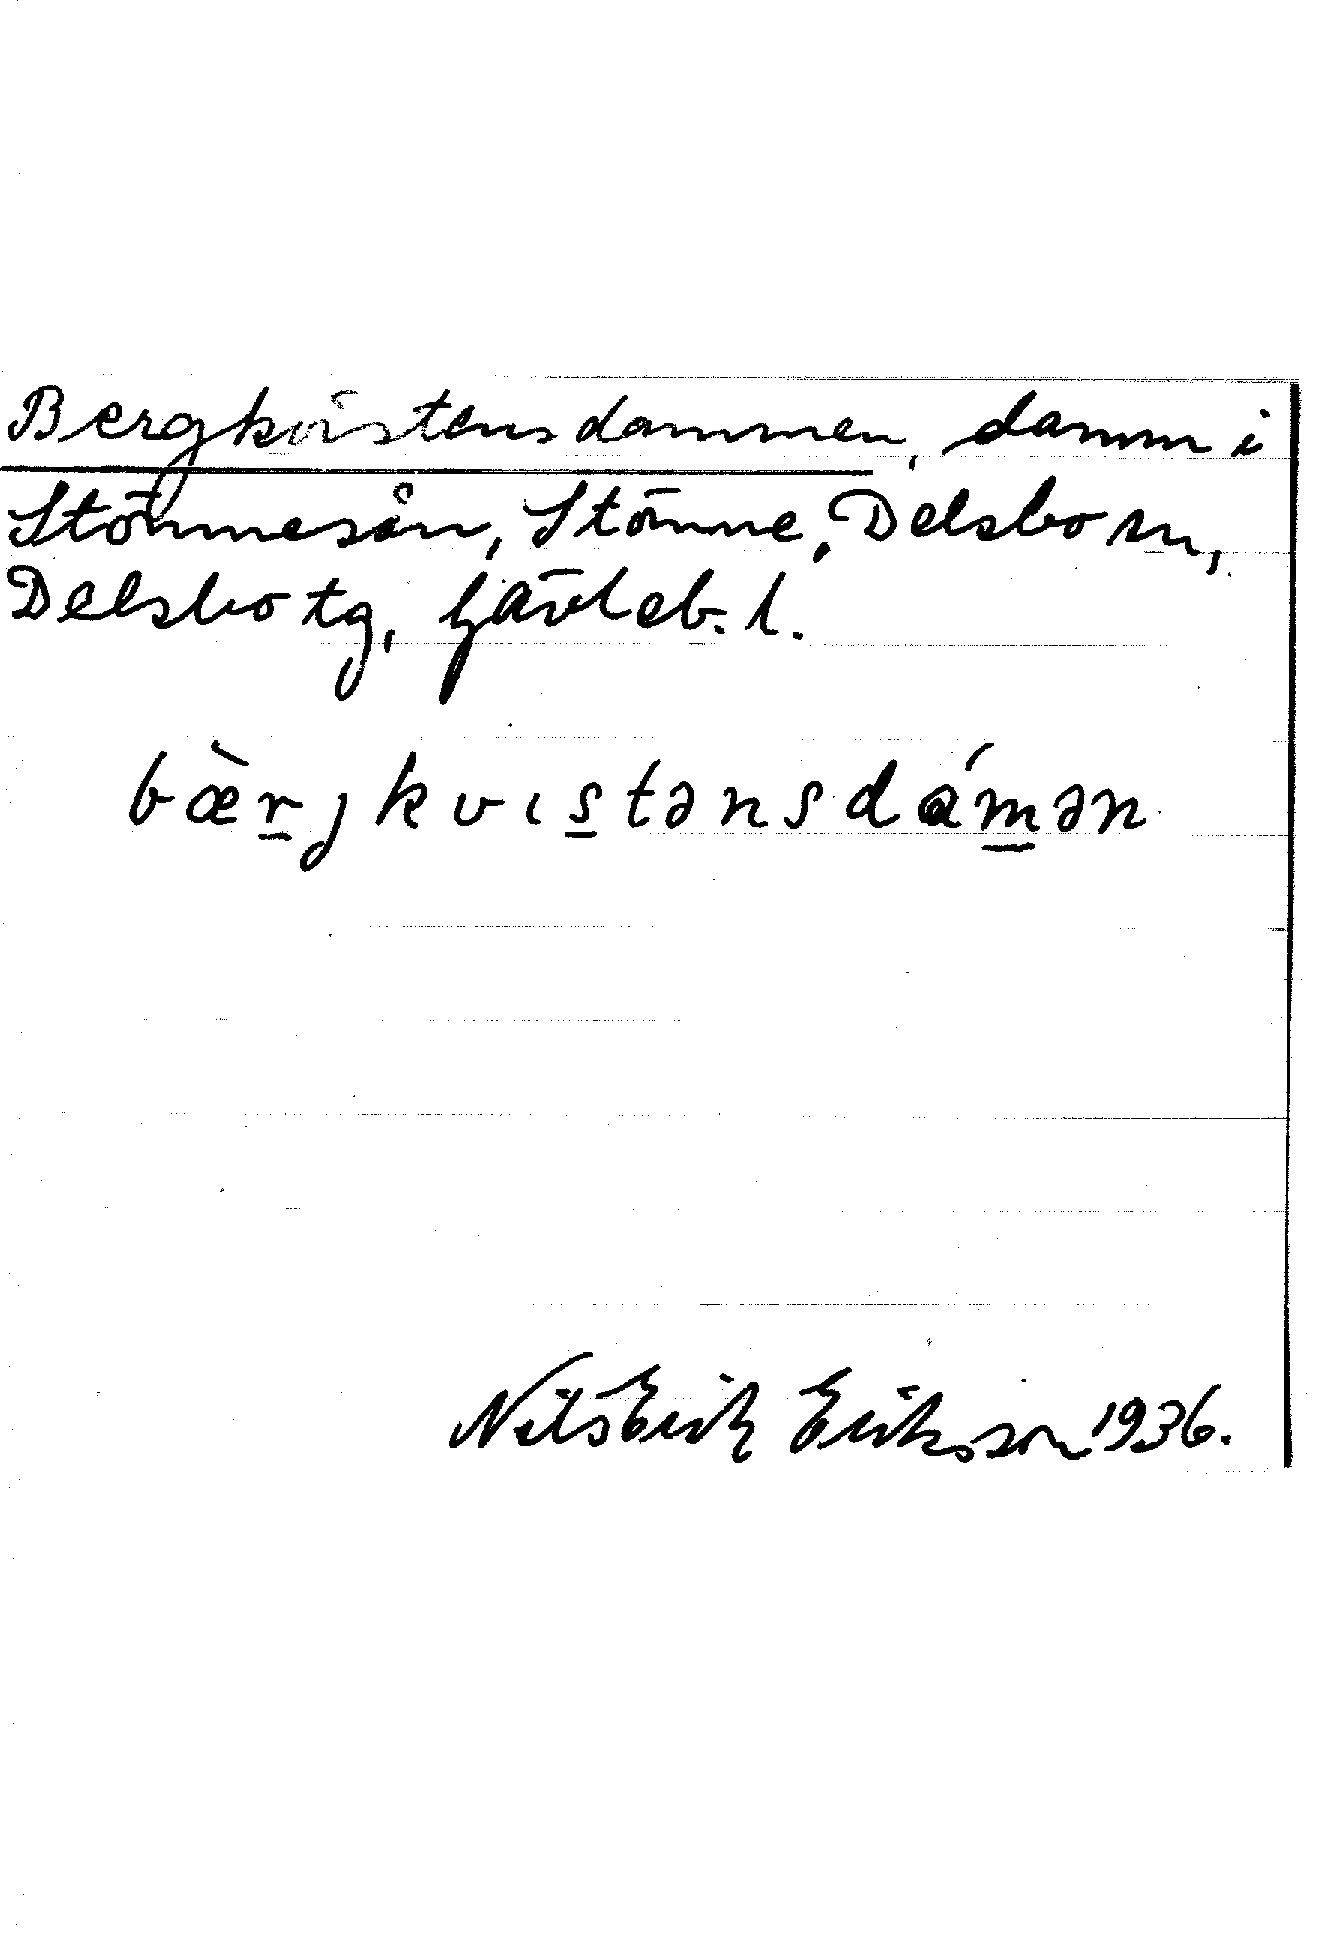 Bergkvistensdammen, damm i
Stömnesån, Stömne, Delsbo sn,
Delsbo tg, Gävleb. l.
bæ̀r̲jkvıs̲tənsdám̲ən
Nils Erik Eriksson 1936.